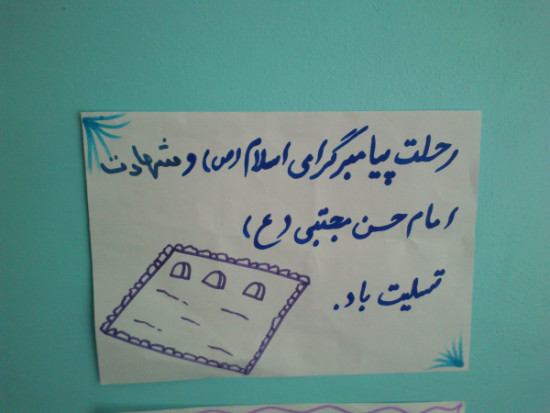 رحلت پیامبر گرامی اسلام (ص) و شهادت
امام حسن مجتبی (ع)
تسلیت باد.